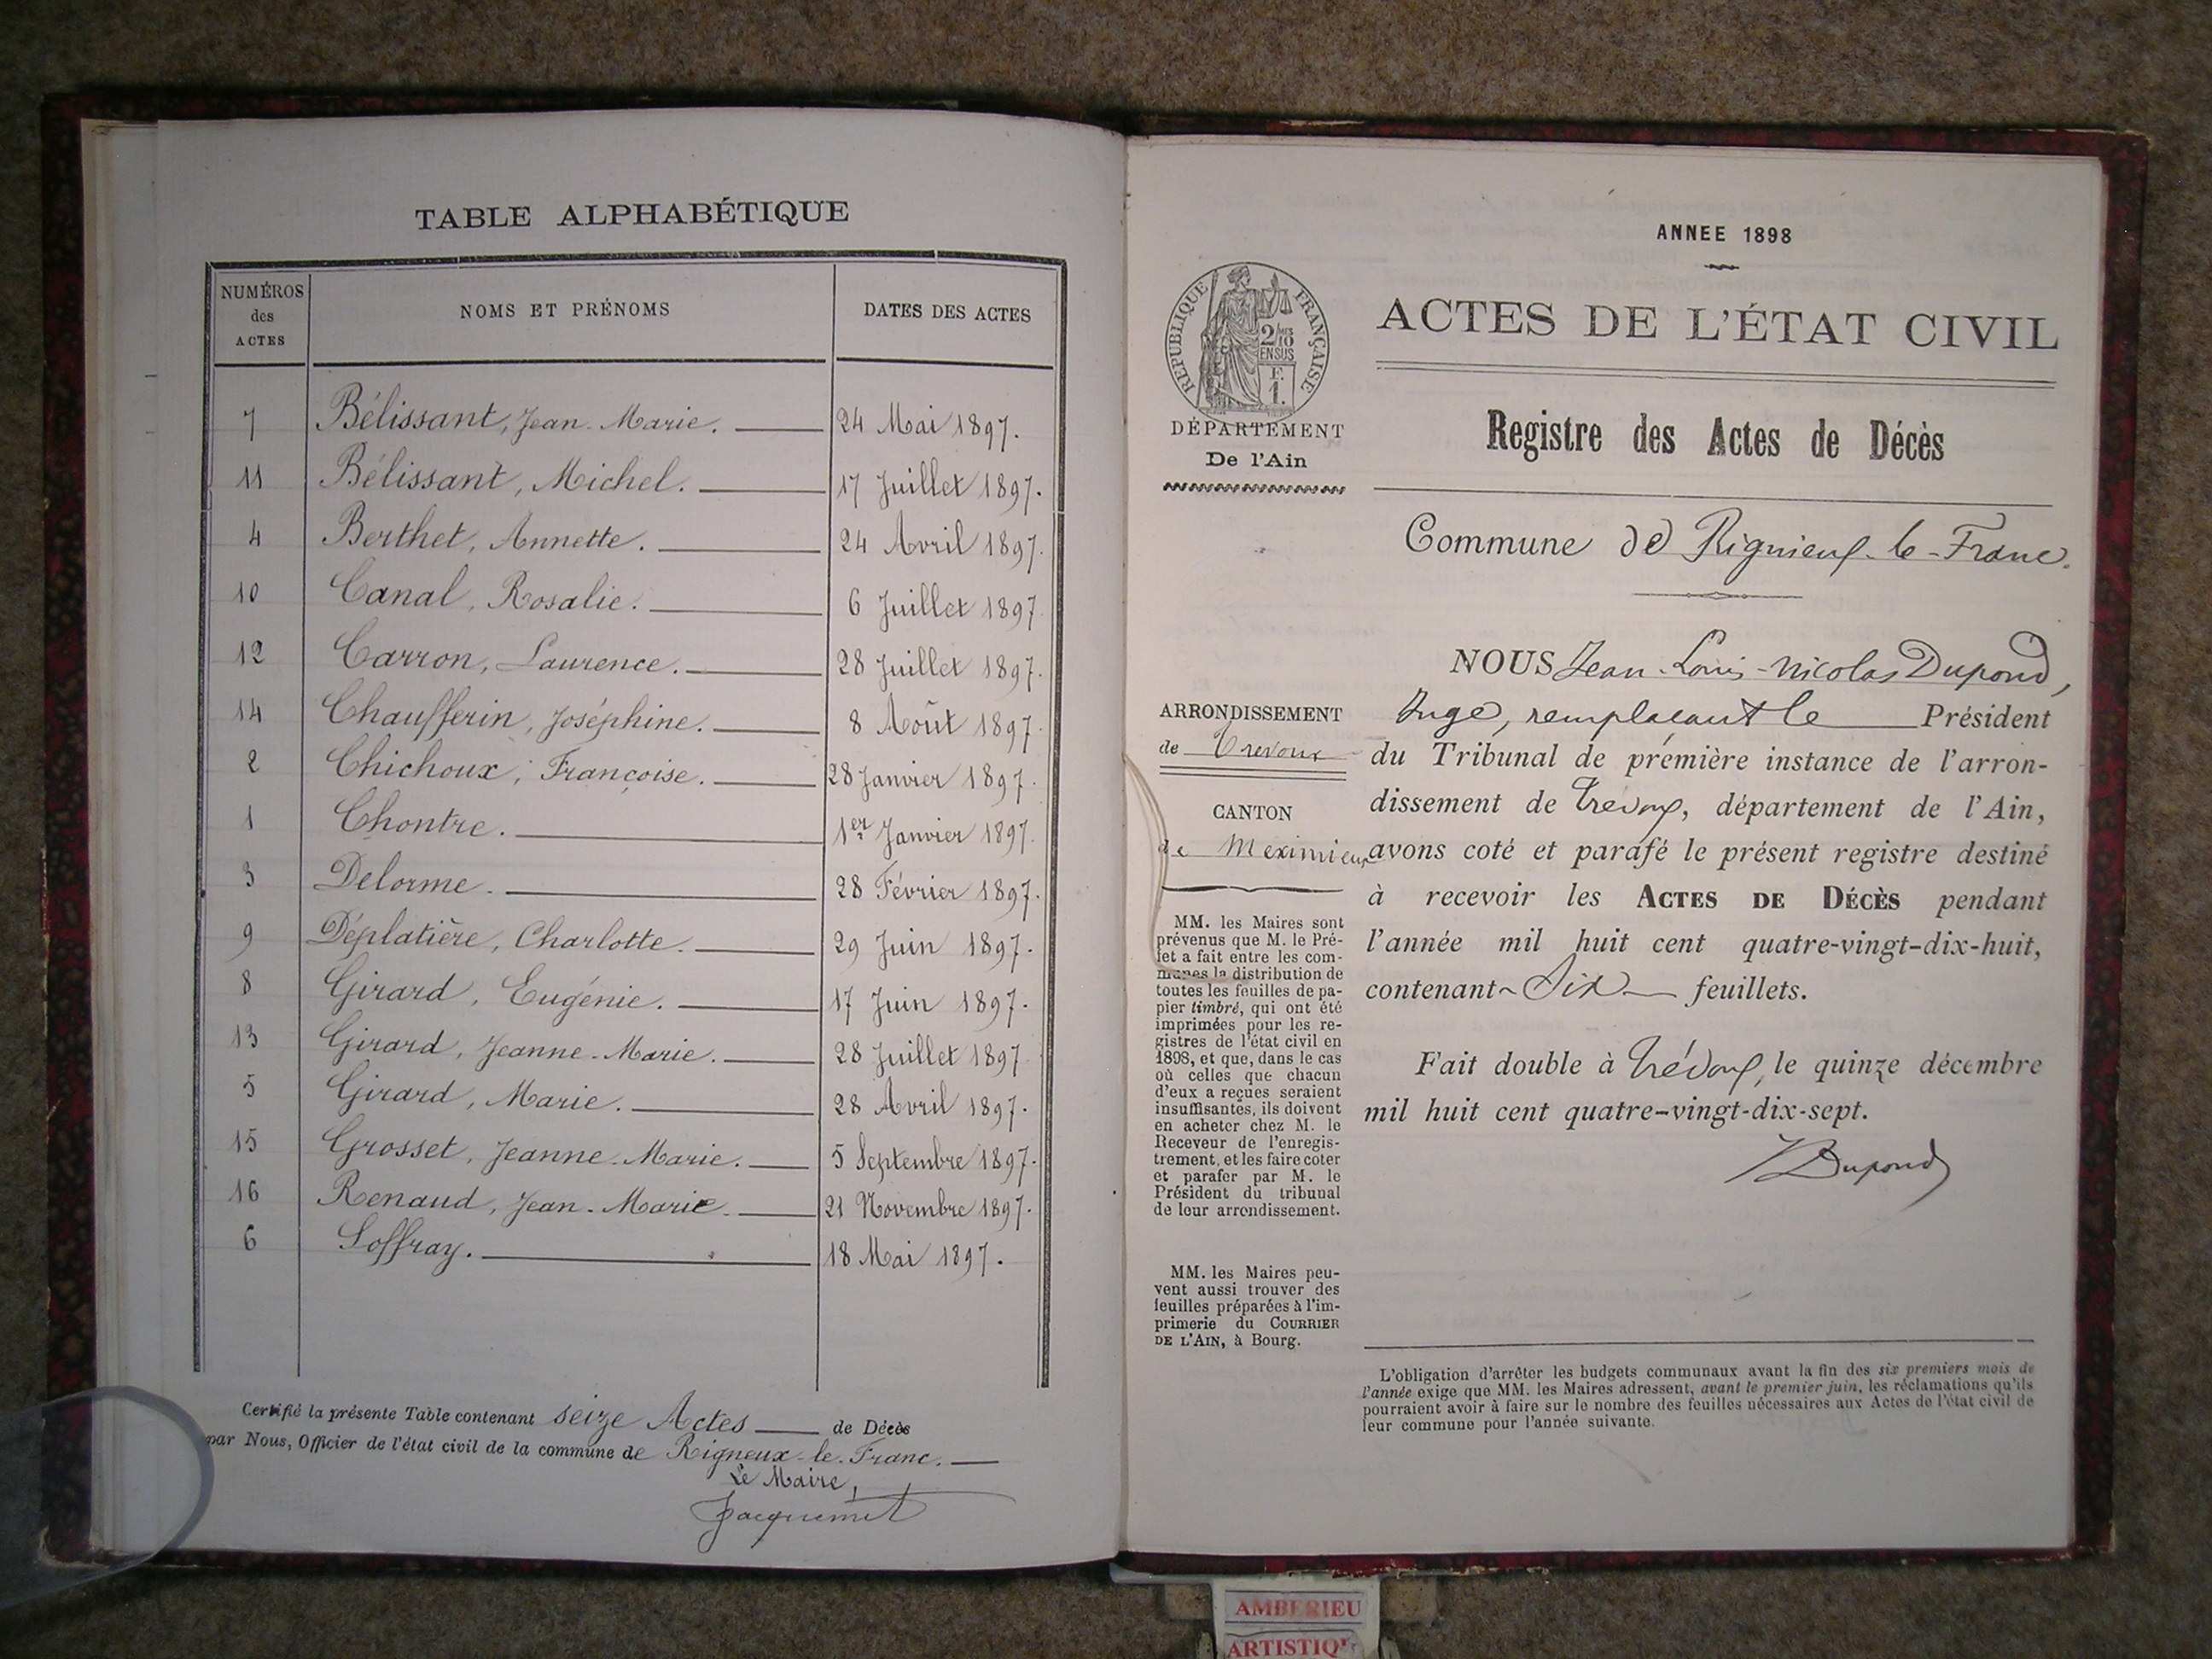 TABLE ALPHABÉTIQUE
NUMÉROS des ACTES NOMS ET PRÉNOMS DATES DES ACTES
7 Bélissant, Jean-Marie. 24 Mai 1897.
11 Bélissant, Michel. 17 Juillet 1897.
4 Berthet, Annette. 24 Avril 1897.
10 Canal, Rosalie. 6 Juillet 1897
12 Carron, Laurence. 28 Juillet 1897.
14 Chaufferin, Joséphine. 8 Août 1897.
2 Chichoux, Françoise. 28 Janvier 1897.
1 Chontre. 1er Janvier 1897.
3 Delorme. 28 Février 1897.
9 Déplatière, Charlotte. 29 Juin 1897.
8 Girard, Eugénie. 17 Juin 1897.
13 Girard, Jeanne-Marie. 28 Juillet 1897
5 Girard, Marie. 28 Avril 1897.
15 Grosset, Jeanne-Marie. 5 Septembre 1897.
16 Renaud, Jean-Marie. 21 Novembre 1897.
6 Soffray. 18 Mai 1897.
Certifié la présente Table contenant seize Actes de Décès
par Nous, Officier de l'état civil de la commune de Rigneux-le-Franc.
Le Maire,
Jacquemet
ANNEE 1898
RÉPUBLIQUE FRANÇAISE
2/10 EN SUS
F. 1.
DÉPARTEMENT
De l'Ain
ARRONDISSEMENT
de Trévoux
CANTON
de Meximieux
MM. les Maires sont
prévenus que M. le Pré-
fet a fait entre les com-
munes la distribution de
toutes les feuilles de pa-
pier timbré, qui ont été
imprimées pour les re-
gistres de l'état civil en
1898, et que, dans le cas
où celles que chacun
d'eux a reçues seraient
insuffisantes, ils doivent
en acheter chez M. le
Receveur de l'enregis-
trement, et les faire coter
et parafer par M. le
Président du tribunal
de leur arrondissement.
MM. les Maires peu-
vent aussi trouver des
feuilles préparées à l'im-
primerie du COURRIER
DE L'AIN, à Bourg.
ACTES DE L'ÉTAT CIVIL
Registre des Actes de Décès
Commune de Rignieux-le-Franc.
NOUS Jean-Louis-Nicolas Dupond,
Juge, remplaçant le Président
du Tribunal de première instance de l'arron-
dissement de Trévoux, département de l'Ain,
avons coté et parafé le présent registre destiné
à recevoir les ACTES DE DÉCÈS pendant
l'année mil huit cent quatre-vingt-dix-huit,
contenant Six feuillets.
Fait double à Trévoux, le quinze décembre
mil huit cent quatre-vingt-dix-sept.
Dupond
L'obligation d'arrêter les budgets communaux avant la fin des six premiers mois de
l'année exige que MM. les Maires adressent, avant le premier juin, les réclamations qu'ils
pourraient avoir à faire sur le nombre des feuilles nécessaires aux Actes de l'état civil de
leur commune pour l'année suivante.
AMBERIEU
ARTISTIQ